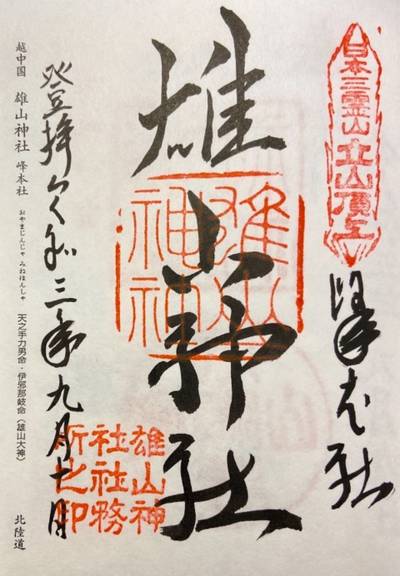 日本三霊山立山頂上
峯本社
雄山神社
雄山神社
雄山神
社社務
所之印
登拝令和三年九月十一日
越中国 雄山神社 峰本社
おやまじんじゃ みねほんしゃ
天之手力男命・伊邪那岐命（雄山大神）
北陸道